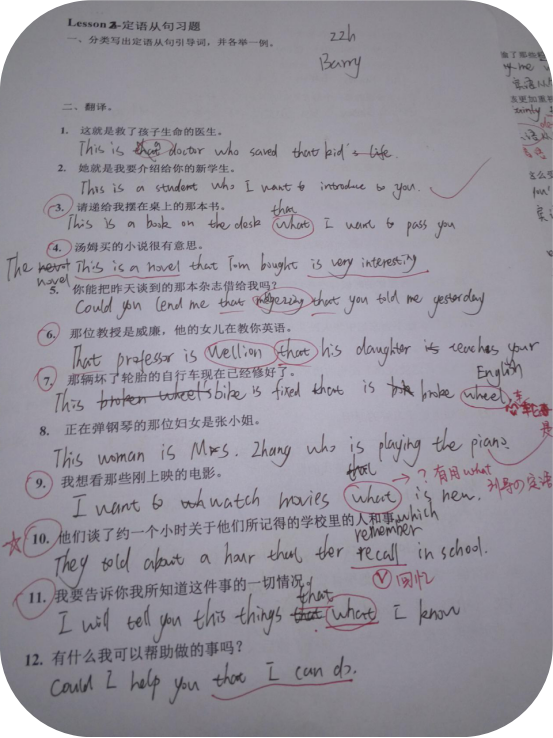 Lesson 2-定语从句习题
一、分类写出定语从句引导词，并各举一例。
22h
Barry
二、翻译。
1. 这就是救了孩子生命的医生。
This is that doctor who saved that kid's life.
2. 她就是我要介绍给你的新学生。
This is a student who I want to introduce to you.
3. 请递给我摆在桌上的那本书。
that
This is a book on the desk what I want to pass you
4. 汤姆买的小说很有意思。
The novel This is a novel that Tom bought is very interesting
5. 你能把昨天谈到的那本杂志借给我吗?
Could you lend me that magazing that you told me yesterday
6. 那位教授是威廉，他的女儿在教你英语。
That professor is Wellion that his daughter is teaches your
English
7. 那辆坏了轮胎的自行车现在已经修好了。
This broken wheel's bike is fixed that is broke wheel
8. 正在弹钢琴的那位妇女是张小姐。
This woman is Mrs. Zhang who is playing the piano.
9. 我想看那些刚上映的电影。
that
I want to watch movies what is new.
→ ? 有用what
引导の定语
10. 他们谈了约一个小时关于他们所记得的学校里的人和事。
which
remember
They told about a hour that ther recall in school.
回忆
11. 我要告诉你我所知道这件事的一切情况。
that
I will tell you this things that what I know
12. 有什么我可以帮助做的事吗?
Could I help you that I can do.